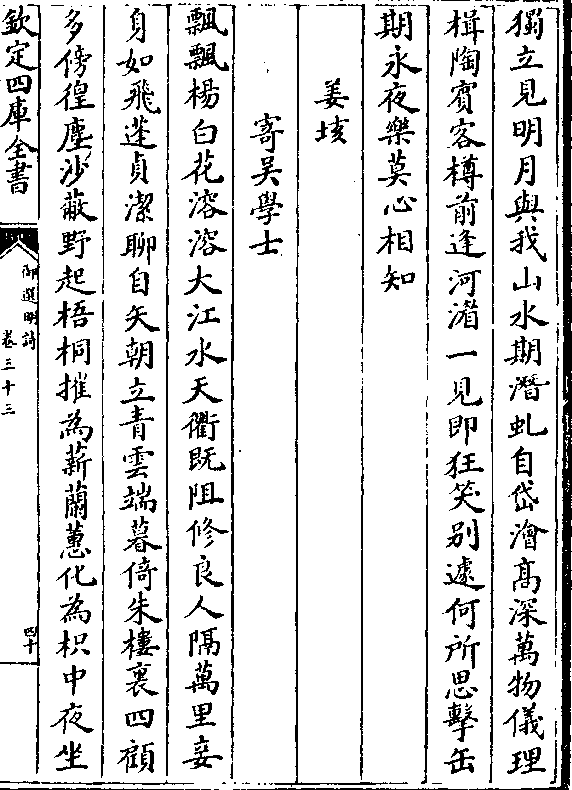 獨立見明月與我山水期潛虬自岱澮髙深萬物儀理
楫陶賓客樽前逢河湑一見即狂笑别遽何所思擊缶
期永夜樂莫心相知
姜垓
寄吴學士
飄飄楊白花溶溶大江水天衢既阻修良人隔萬里妾
身如飛蓬貞潔聊自矢朝立青雲端暮倚朱樓裏四顧
多傍徨塵沙蔽野起梧桐摧為薪蘭蕙化為枳中夜坐
欽定四庫全書
御選明詩
卷三十三
四十